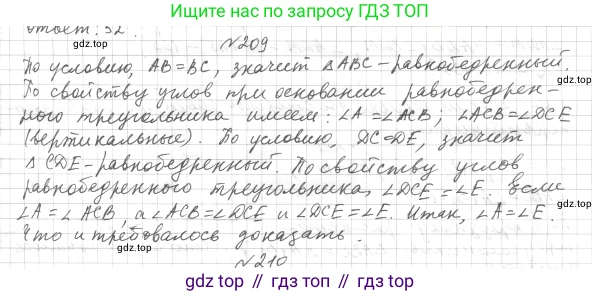 Ищите нас по запросу ГДЗ ТОП
Ответ: 32.
gdz.top
gdz.top
№209
По условию, AB=BC, значит ΔABC-равнобедренный.
По свойству углов при основании равнобедрен-
ного треугольника имеем: ∠A=∠ACB; ∠ACB=∠DCE
(вертикальные). По условию, DC=DE, значит
ΔCDE-равнобедренный. По свойству углов
равнобедренного треугольника, ∠DCE=∠E. Если
∠A=∠ACB, а ∠ACB=∠DCE и ∠DCE=∠E. Итак, ∠A=∠E.
Что и требовалось доказать.
gdz.top
gdz.top
№210
gdz top // гдз топ // gdz.top